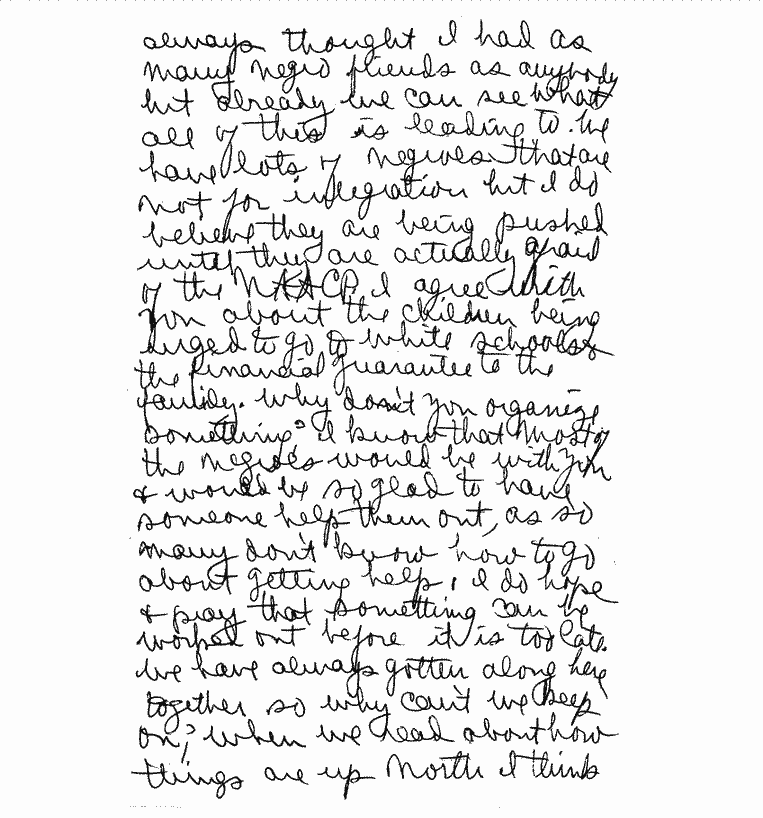 always thought I had as
many negro friends as anybody
but already we can see what
all of this is leading to. We
have lots of negroes that are
not for integration but I do
believe they are being pushed
until they are actually afraid
of the NAACP. I agree with
you about the children being
urged to go to white schools &
the financial guarantee to the
family. Why don't you organize
something? I know that most of
the negroes would be with you
& would be so glad to have
someone help them out, as so
many don't know how to go
about getting help. I do hope
& pray that something can be
worked out before it is too late.
We have always gotten along here
together so why can't we keep
on; when we read about how
things are up North I think